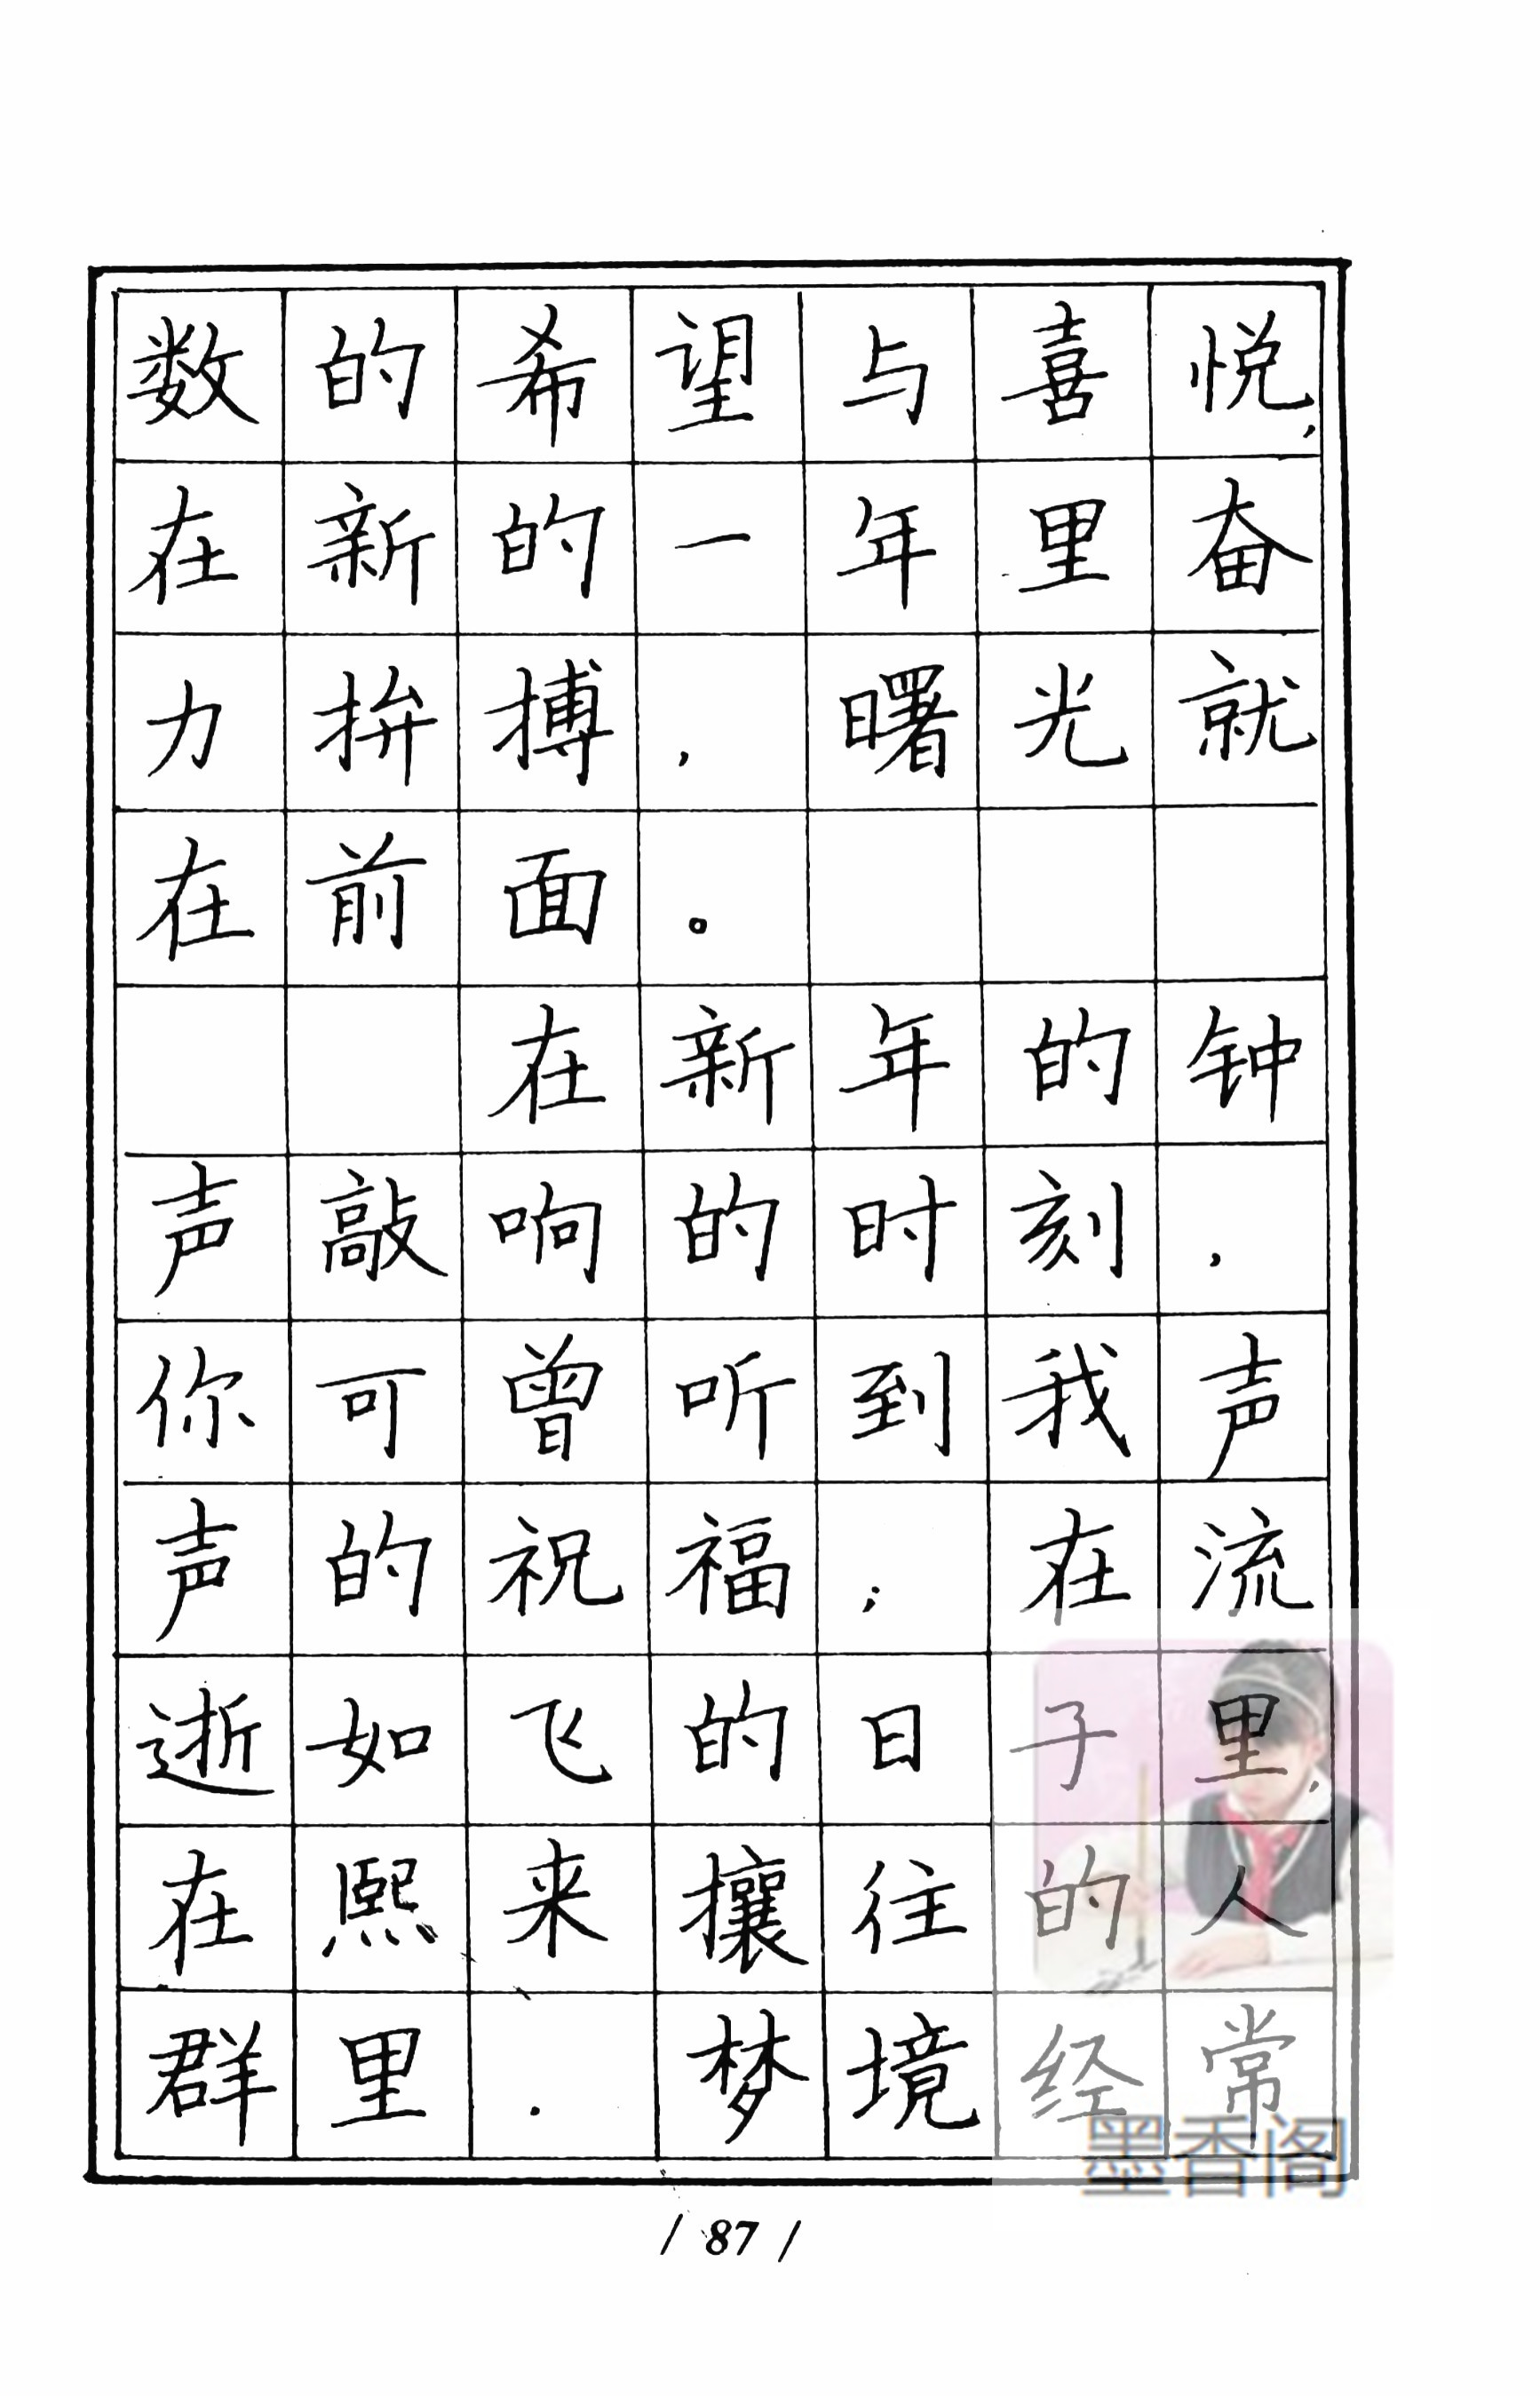 数的希望与喜悦，
在新的一年里奋
力拚搏，曙光就
在前面。
在新年的钟
声敲响的时刻，
你可曾听到我声
声的祝福；在流
逝如飞的日子里，
在熙来攘往的人
群里，梦境经常
墨香阁
/ 87 /